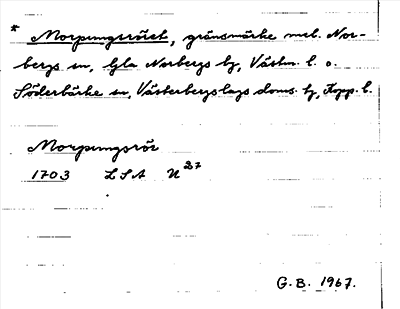 * Morpungsröset, gränsmärke mel. Nor-
bergs sn, Gla Norbergs bg, Västm. l. o.
Söderbärke sn, Västerbergslags doms. hg, Kopp. l.
Morpungsrör
1703 LSA U 27
G.B. 1967.